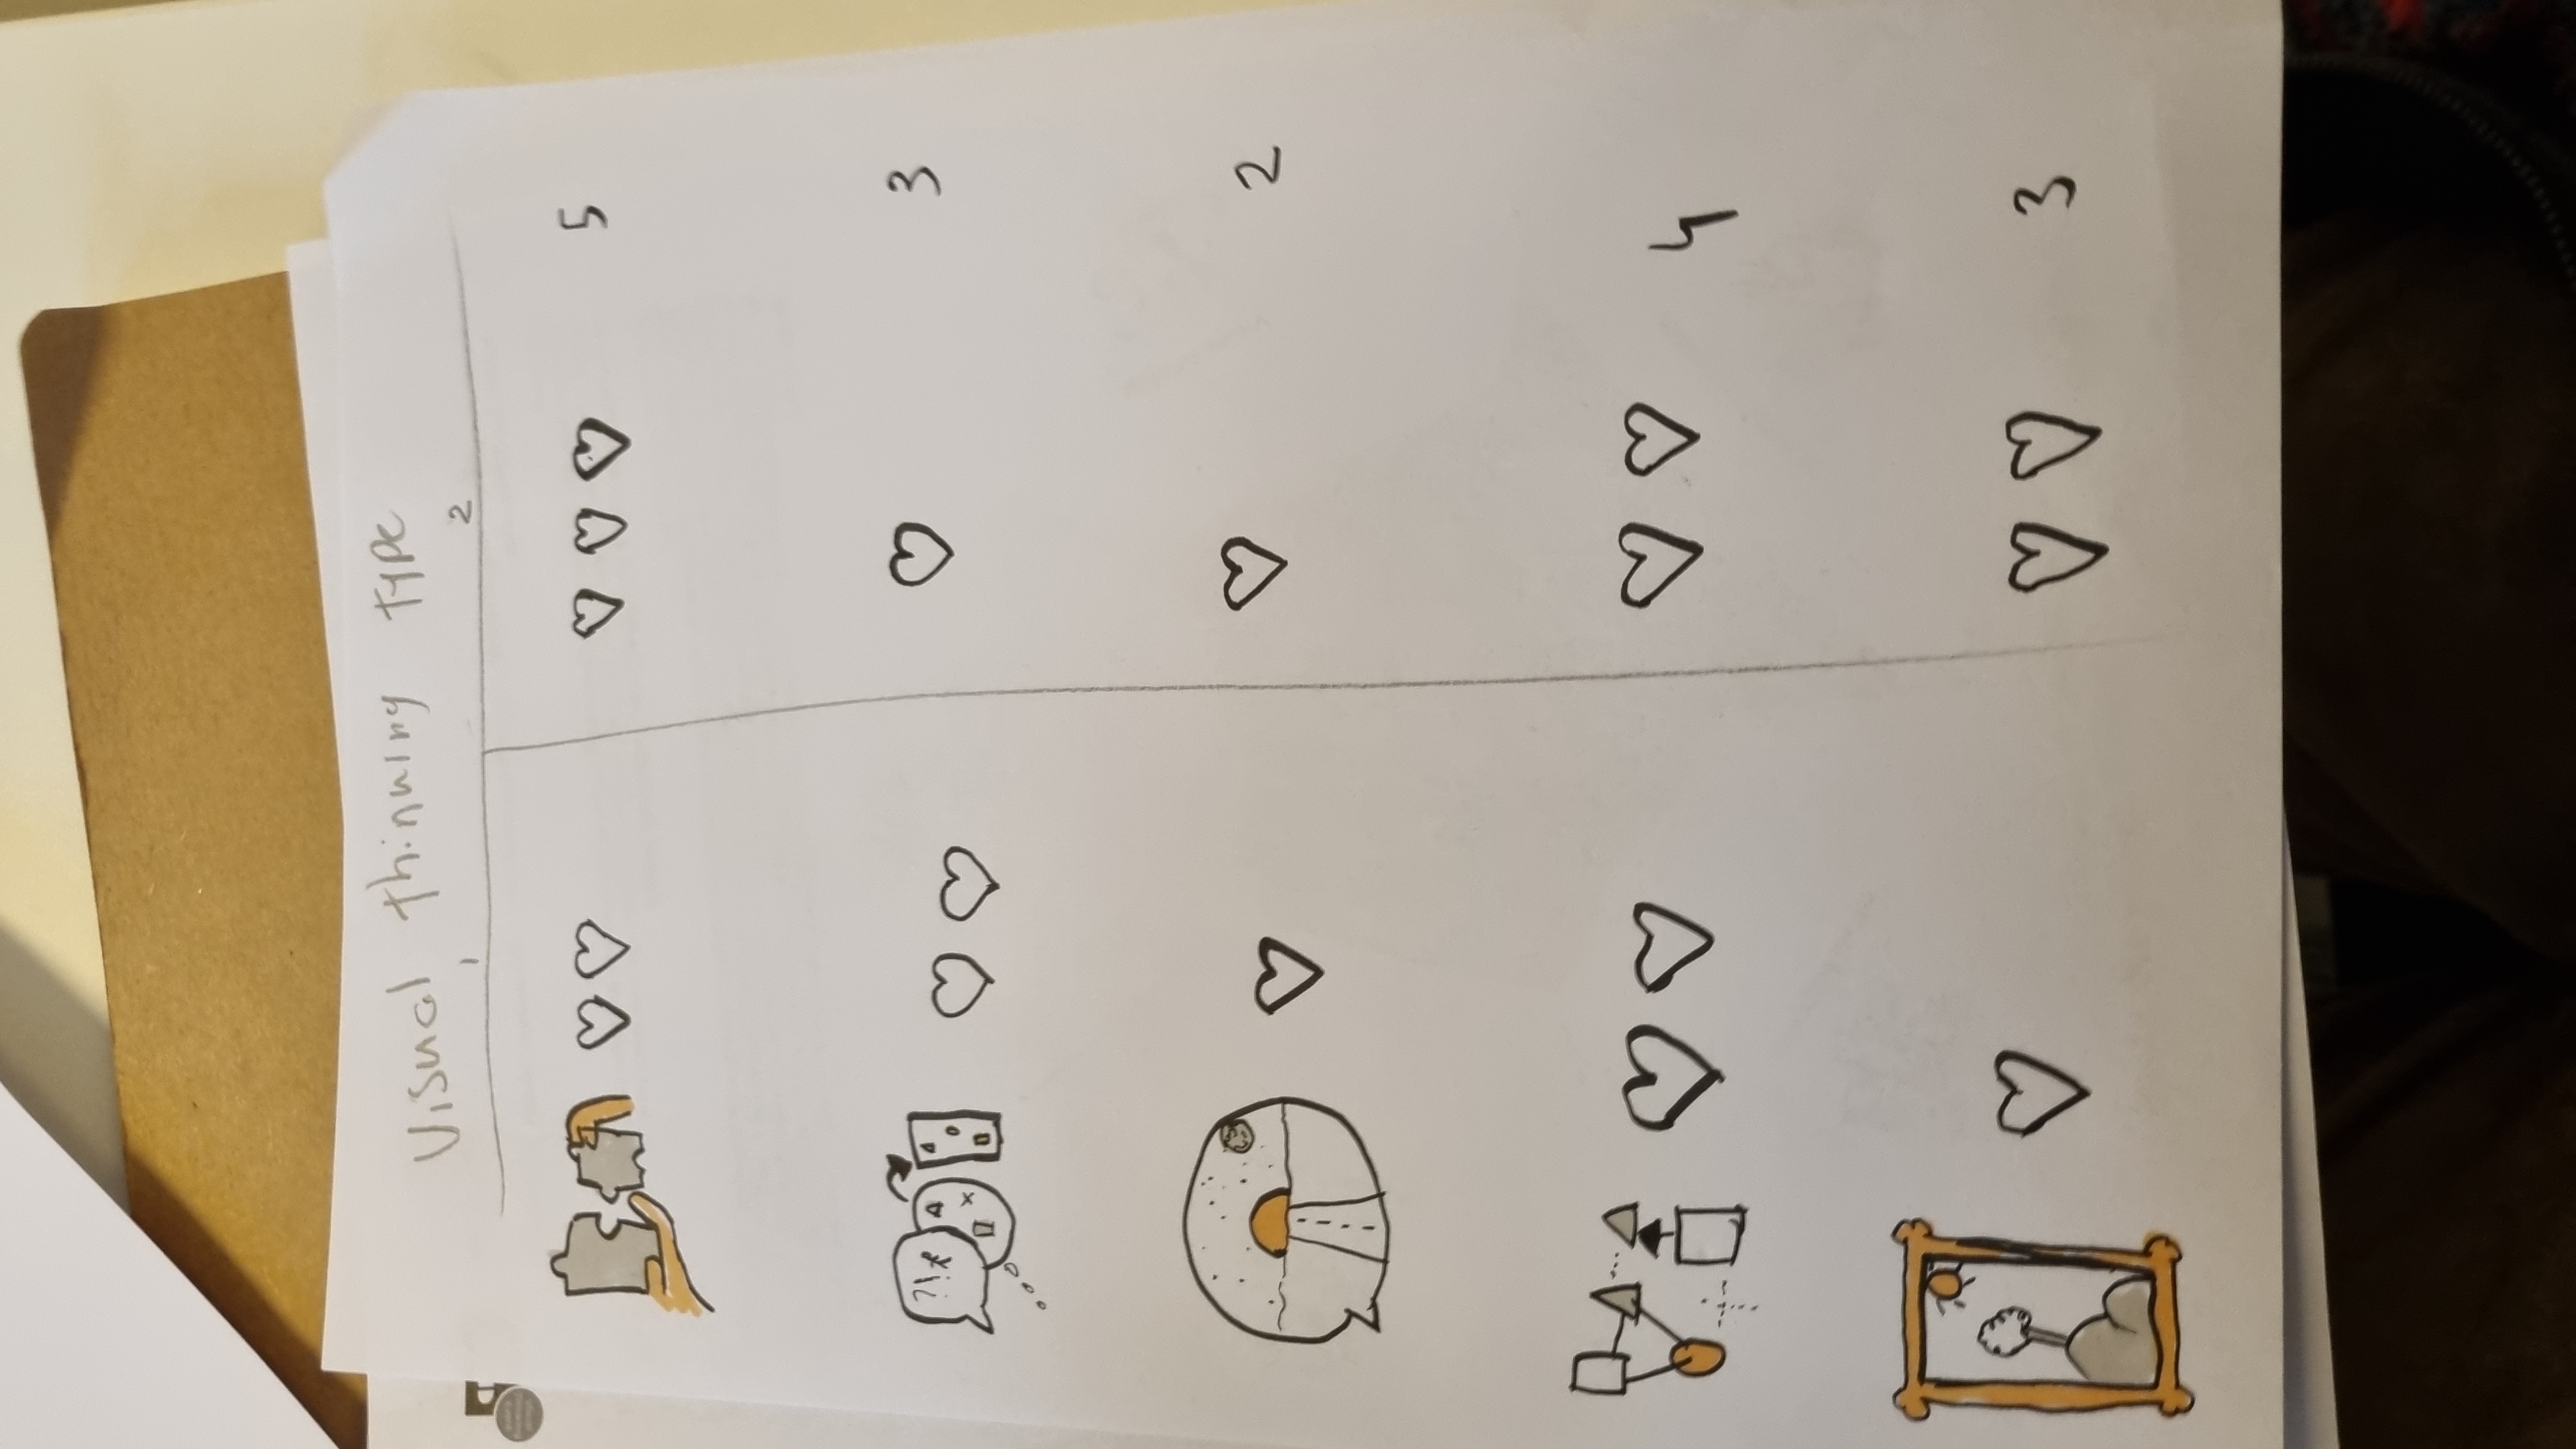 Visual thinking type
1 2
5
?!
3
2
4
3